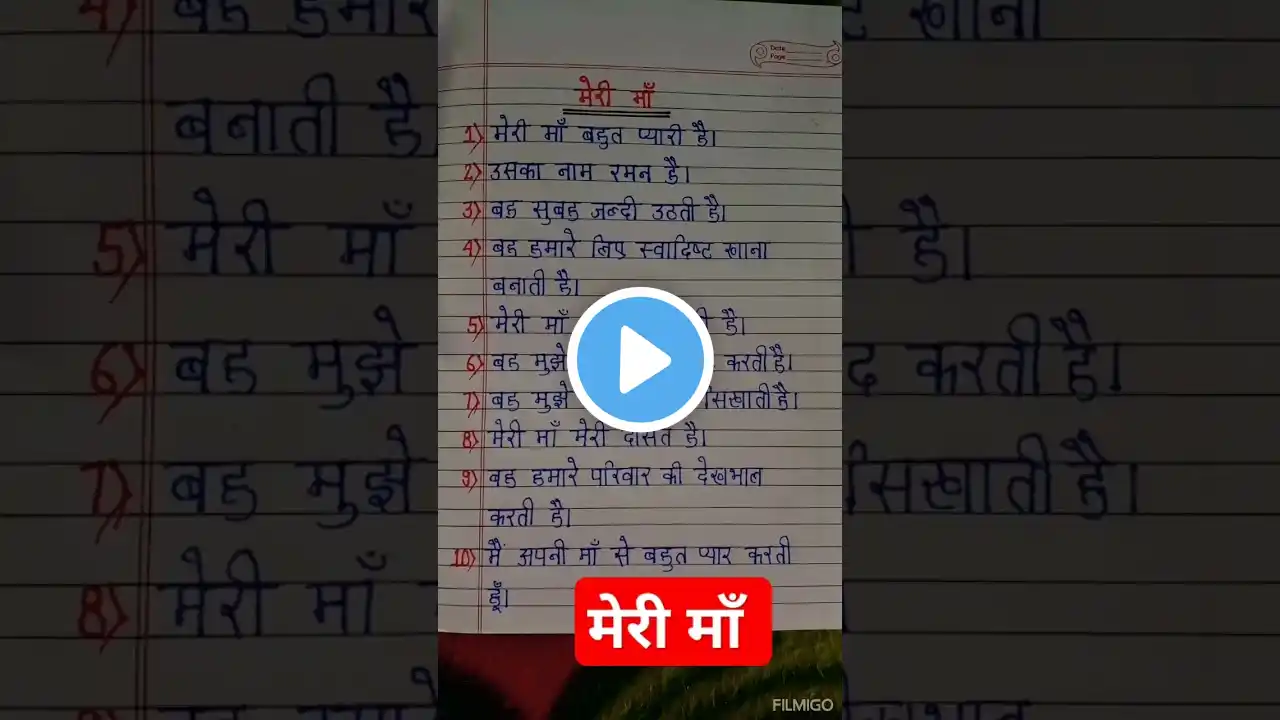 Date
Page
मेरी माँ
1) मेरी माँ बहुत प्यारी है।
2) उसका नाम रमन है।
3) वह सुबह जल्दी उठती है।
4) वह हमारे लिए स्वादिष्ट खाना
बनाती है।
5) मेरी माँ है।
6) वह मुझे करती है।
7) वह मुझे सिखाती है।
8) मेरी माँ मेरी दोस्त है।
9) वह हमारे परिवार की देखभाल
करती है।
10) मैं अपनी माँ से बहुत प्यार करती
हूँ।
मेरी माँ
FILMIGO